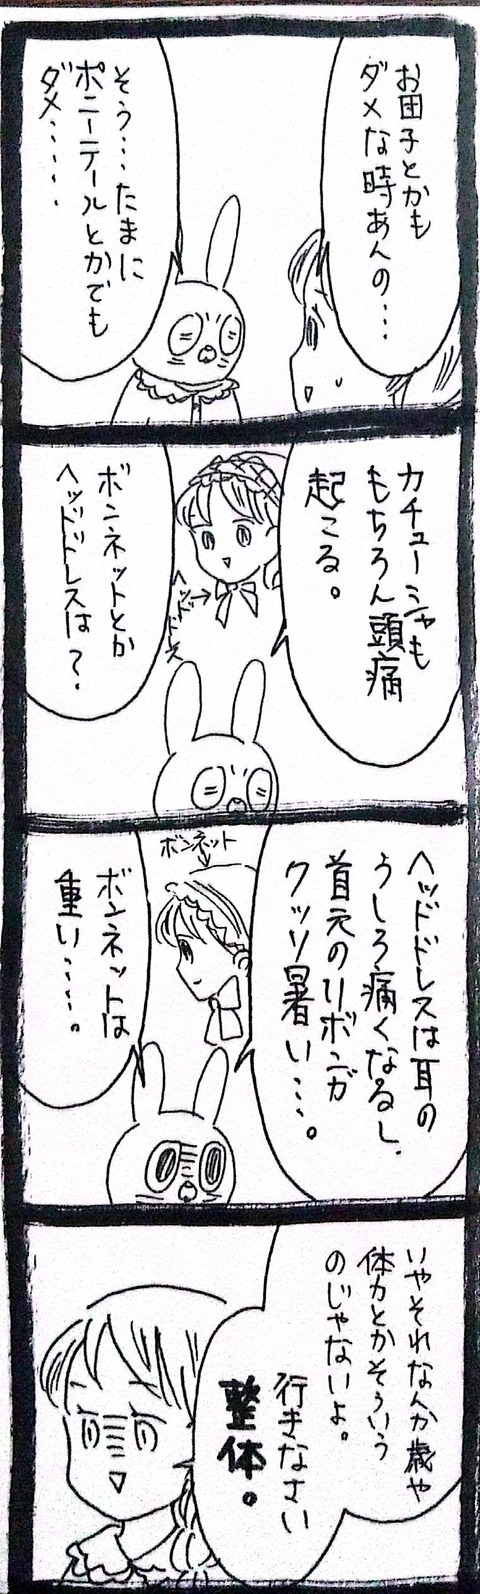 お団子とかも
ダメな時あんの…
そう…たまに
ポニーテールとかでも
ダメ……
カチューシャも
もちろん頭痛
起こる。
ヘッドドレス
ボンネットとか
ヘッドドレスは？
ボンネット
ヘッドドレスは耳の
うしろ痛くなるし、
首元のリボンが
クッソ暑い…。
ボンネットは
重い……。
いやそれなんか歳や
体力とかそういう
のじゃないよ。
行きなさい
整体。